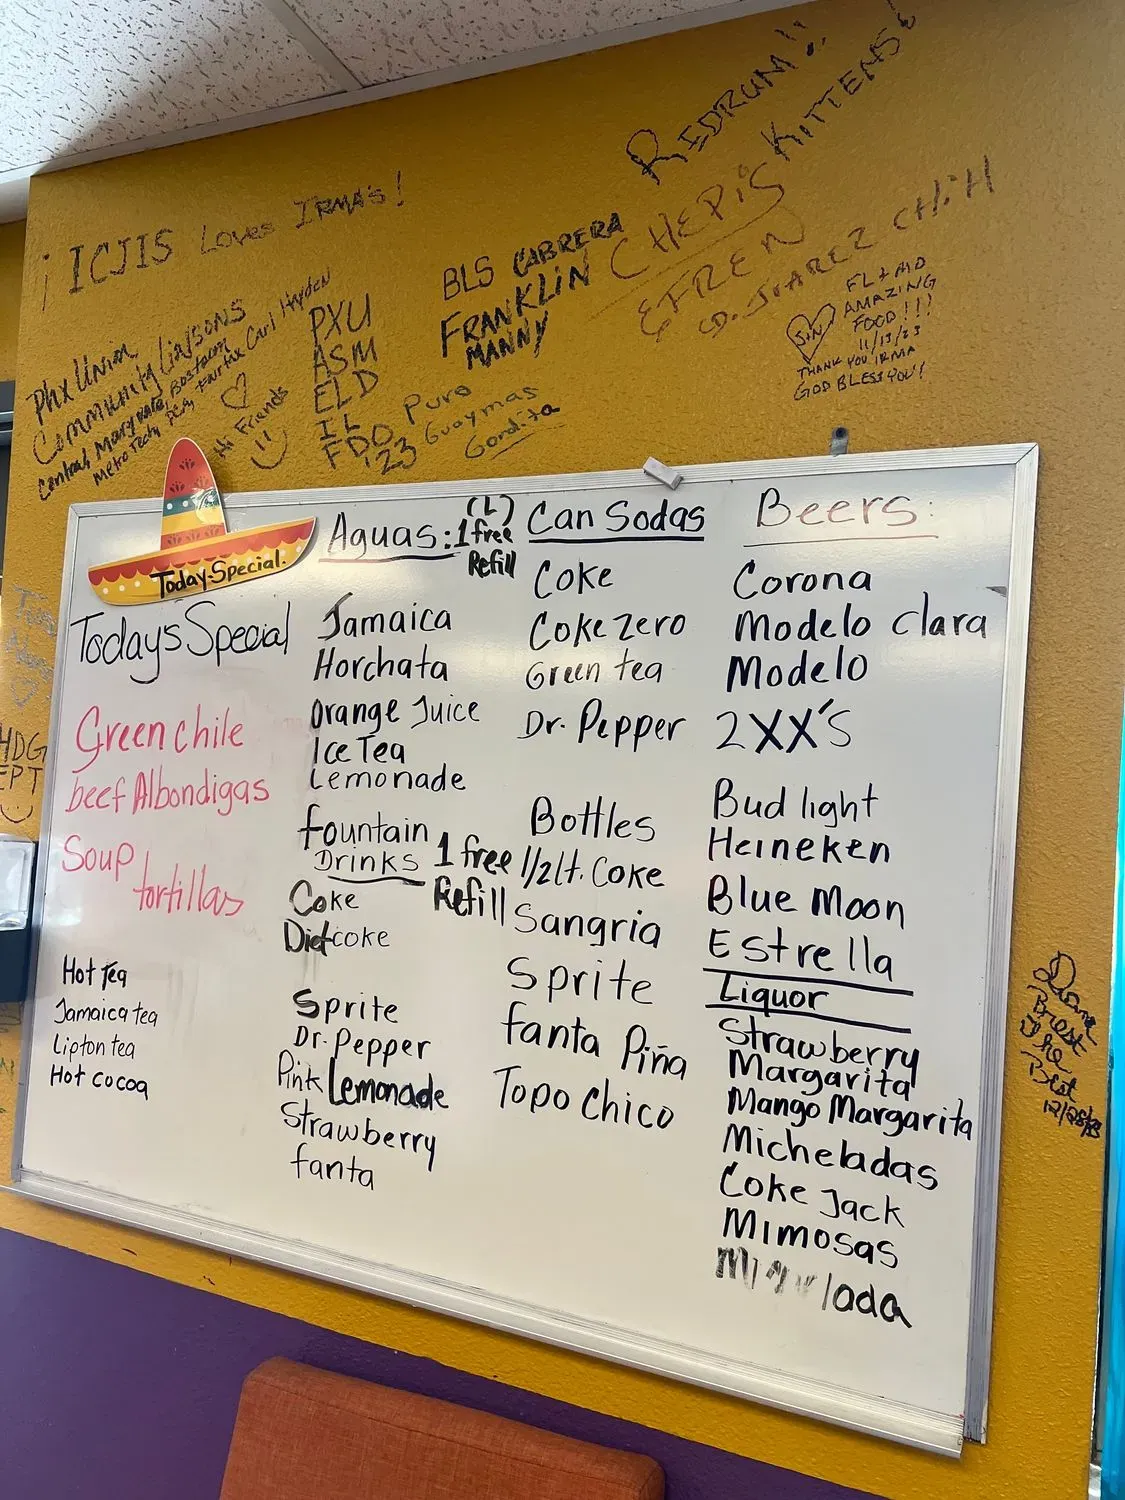 REDRUM!!
KITTENS!
¡ICJIS Loves IRMA'S!
BLS CABRERA
FRANKLIN
MANNY
CHEPIS
EFREN
CD. JUAREZ CHIH
FL + MD
AMAZING
FOOD!!!
11/13/23
THANK YOU IRMA
GOD BLESS YOU!
Phx Union
Community Liaisons
Central, Maryvale, Bostrom
Metro Tech, PCA, Fairfax Carl Hayden
Hi Friends
PXU
ASM
ELD
IL
FDO
'23
Puro
Guaymas
Gordita
Today Special.
Todays Special
Green chile
beef Albondigas
Soup
tortillas
Hot Tea
Jamaica tea
Lipton tea
Hot cocoa
Aguas: (L) 1 free Refill
Jamaica
Horchata
Orange Juice
Ice Tea
Lemonade
fountain
Drinks 1 free Refill
Coke
Diet coke
Sprite
Dr. Pepper
Pink Lemonade
Strawberry
fanta
Can Sodas
Coke
Coke zero
Green tea
Dr. Pepper
Bottles
1/2 Lt. Coke
Sangria
Sprite
fanta Piña
Topo Chico
Beers:
Corona
Modelo Clara
Modelo
2XX'S
Bud light
Heineken
Blue Moon
Estrella
Liquor
Strawberry
Margarita
Mango Margarita
Micheladas
Coke Jack
Mimosas
HDG
EPT
The
Best